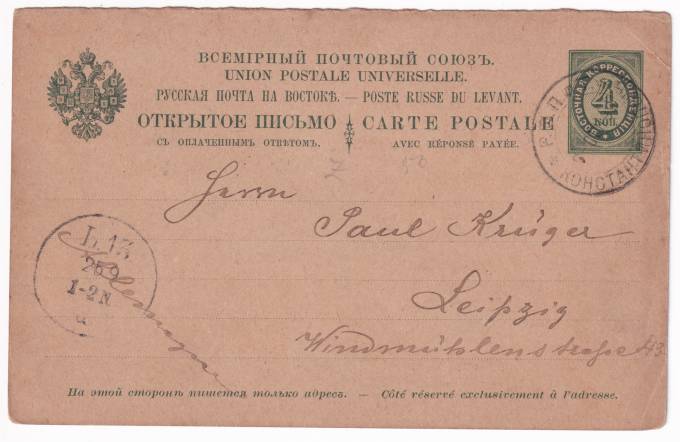 ВСЕМІРНЫЙ ПОЧТОВЫЙ СОЮЗЪ.
UNION POSTALE UNIVERSELLE.
РУССКАЯ ПОЧТА НА ВОСТОКѢ. — POSTE RUSSE DU LEVANT.
ОТКРЫТОЕ ПИСЬМО CARTE POSTALE
СЪ ОПЛАЧЕННЫМЪ ОТВѢТОМЪ. AVEC RÉPONSE PAYÉE.
ВОСТОЧНАЯ КОРРЕСПОНДЕНЦІЯ
4
КОП.
КОНСТАНТИНОП
Herrn
Paul Krüger
Leipzig
Windmühlenstraße 43
L. 13
25 9
1-2 N
a
На этой сторонѣ пишется только адресъ. — Côté réservé exclusivement à l'adresse.